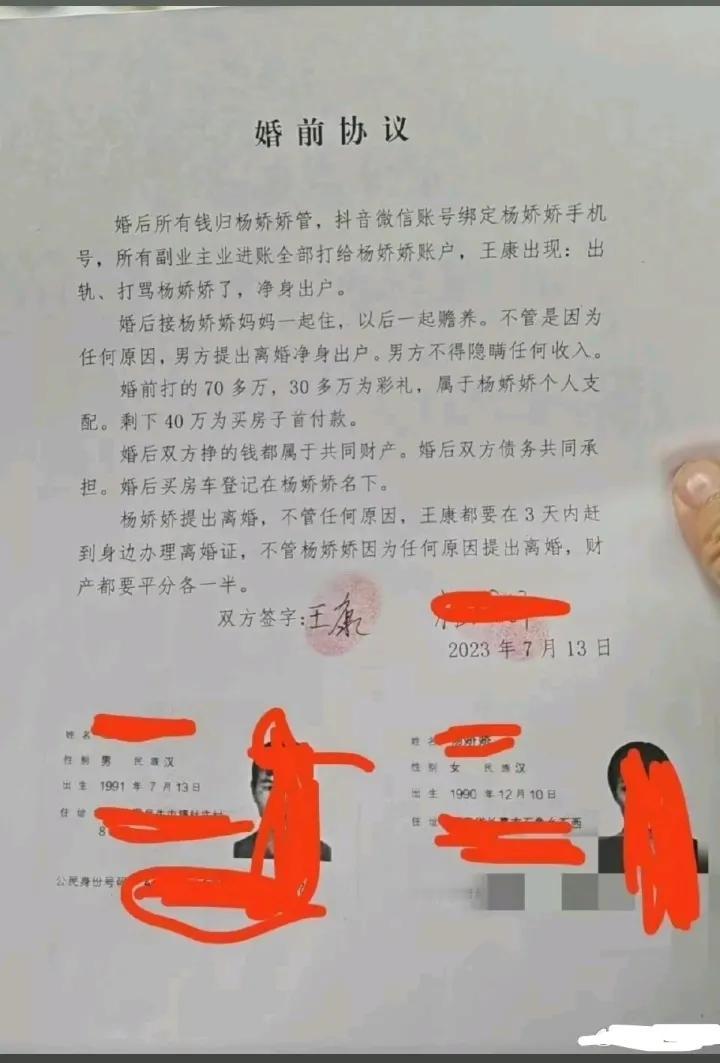 婚前协议
婚后所有钱归杨娇娇管，抖音微信账号绑定杨娇娇手机
号，所有副业主业进账全部打给杨娇娇账户，王康出现：出
轨、打骂杨娇娇了，净身出户。
婚后接杨娇娇妈妈一起住，以后一起赡养。不管是因为
任何原因，男方提出离婚净身出户。男方不得隐瞒任何收入。
婚前打的 70 多万，30 多万为彩礼，属于杨娇娇个人支
配。剩下 40 万为买房子首付款。
婚后双方挣的钱都属于共同财产。婚后双方债务共同承
担。婚后买房车登记在杨娇娇名下。
杨娇娇提出离婚，不管任何原因，王康都要在 3 天内赶
到身边办理离婚证，不管杨娇娇因为任何原因提出离婚，财
产都要平分各一半。
双方签字:王康
2023 年 7 月 13 日
姓名
性别 男 民族 汉
出生 1991 年 7 月 13 日
住址
8
公民身份号码
姓名
性别 女 民族 汉
出生 1990 年 12 月 10 日
住址